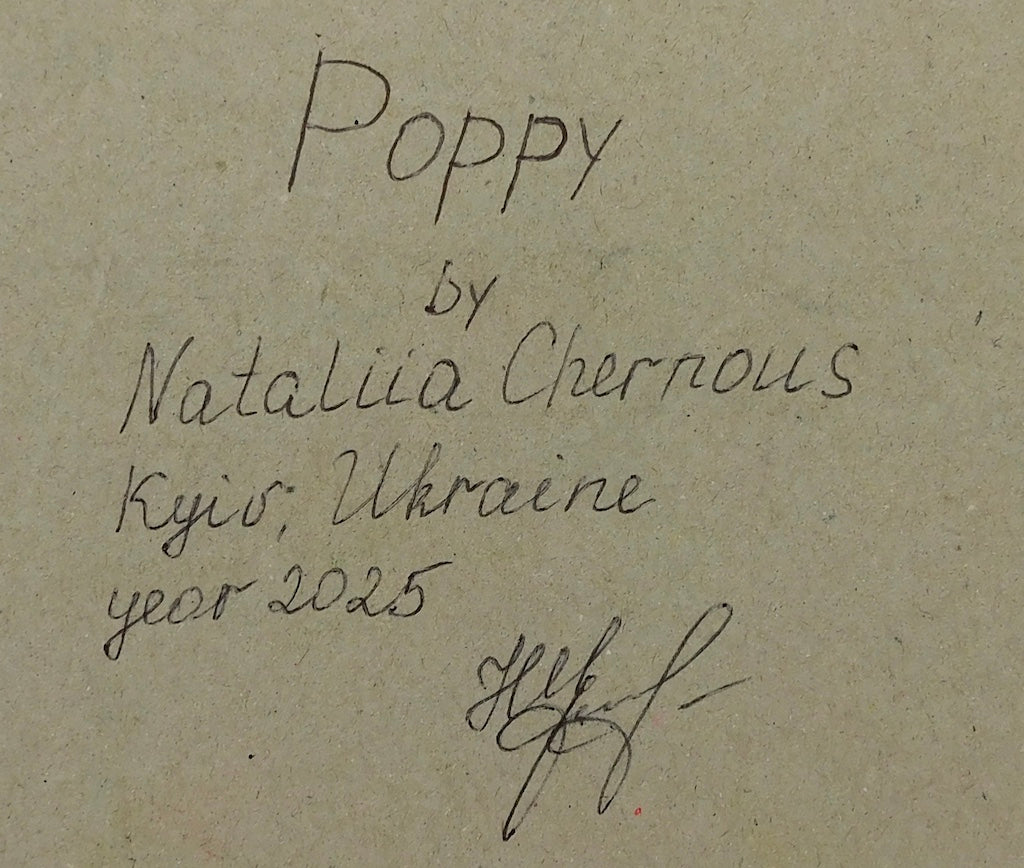 Poppy
by
Nataliia Chernous
Kyiv, Ukraine
year 2025